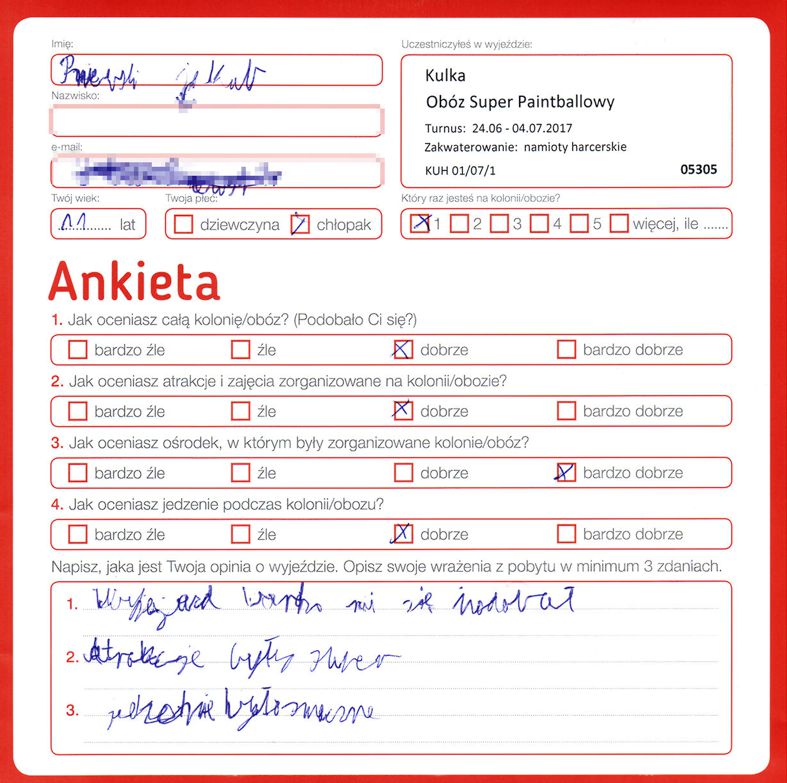 Imię:
Uczestniczyłeś w wyjeździe:
Kulka
Obóz Super Paintballowy
Nazwisko:
Turnus: 24.06 - 04.07.2017
Zakwaterowanie: namioty harcerskie
KUH 01/07/1 05305
e-mail:
Twój wiek:
11 lat
Twoja płeć:
dziewczyna chłopak
Który raz jesteś na kolonii/obozie?
1 2 3 4 5 więcej, ile .......
Ankieta
1. Jak oceniasz całą kolonię/obóz? (Podobało Ci się?)
bardzo źle źle dobrze bardzo dobrze
2. Jak oceniasz atrakcje i zajęcia zorganizowane na kolonii/obozie?
bardzo źle źle dobrze bardzo dobrze
3. Jak oceniasz ośrodek, w którym były zorganizowane kolonie/obóz?
bardzo źle źle dobrze bardzo dobrze
4. Jak oceniasz jedzenie podczas kolonii/obozu?
bardzo źle źle dobrze bardzo dobrze
Napisz, jaka jest Twoja opinia o wyjeździe. Opisz swoje wrażenia z pobytu w minimum 3 zdaniach.
1. Wyjazd bardzo mi się podobał
2. Atrakcje były super
3. jedzenie było smaczne